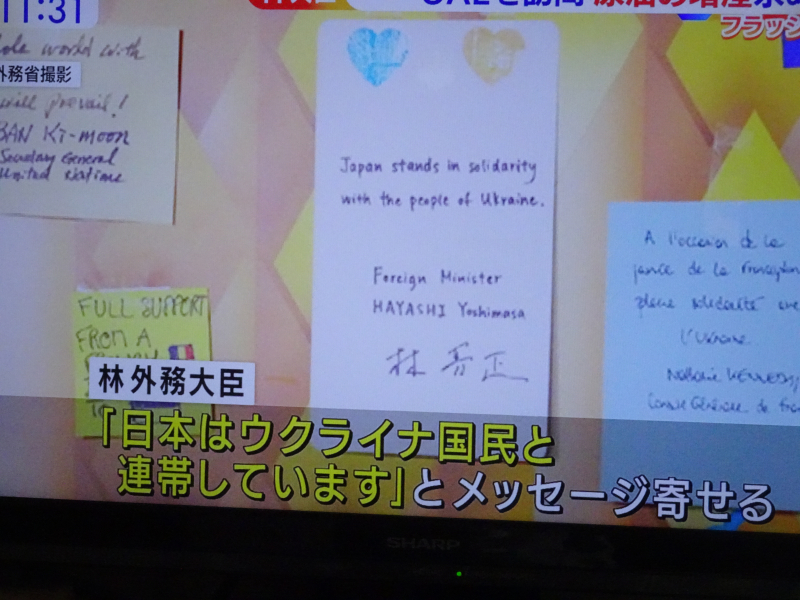 11:31
林大臣
UAEを訪問 原油の増産求め
フラッシ
world with
外務省撮影
will prevail!
BAN KI-MOON
Secretary General
United Nations
Japan stands in solidarity
with the people of Ukraine.
Foreign Minister
HAYASHI Yoshimasa
林 芳正
FULL SUPPORT
FROM A
A l'occasion de la
de la Francophon
solidarité ave
l'Ukraine
Nathalie KENNEDY
Consule Générale de Fran
林 外務大臣
「日本はウクライナ国民と
連帯しています」とメッセージ寄せる
SHARP